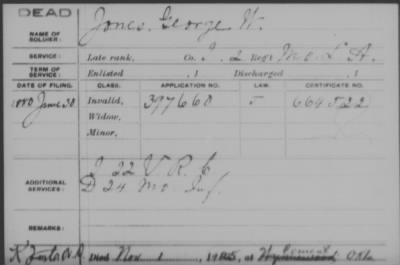 DEAD
NAME OF SOLDIER: Jones, George W.
SERVICE: Late rank, Co. I, 2 Reg't Mo. L. A.
TERM OF SERVICE: Enlisted , 1 Discharged , 1
DATE OF FILING. CLASS. APPLICATION NO. LAW. CERTIFICATE NO.
1880 June 30 Invalid, 397660 664522
Widow,
Minor,
ADDITIONAL SERVICES: I 22 V. R. C.
D 24 Mo. Inf.
REMARKS:
died Nov 1, 1925, at Okla